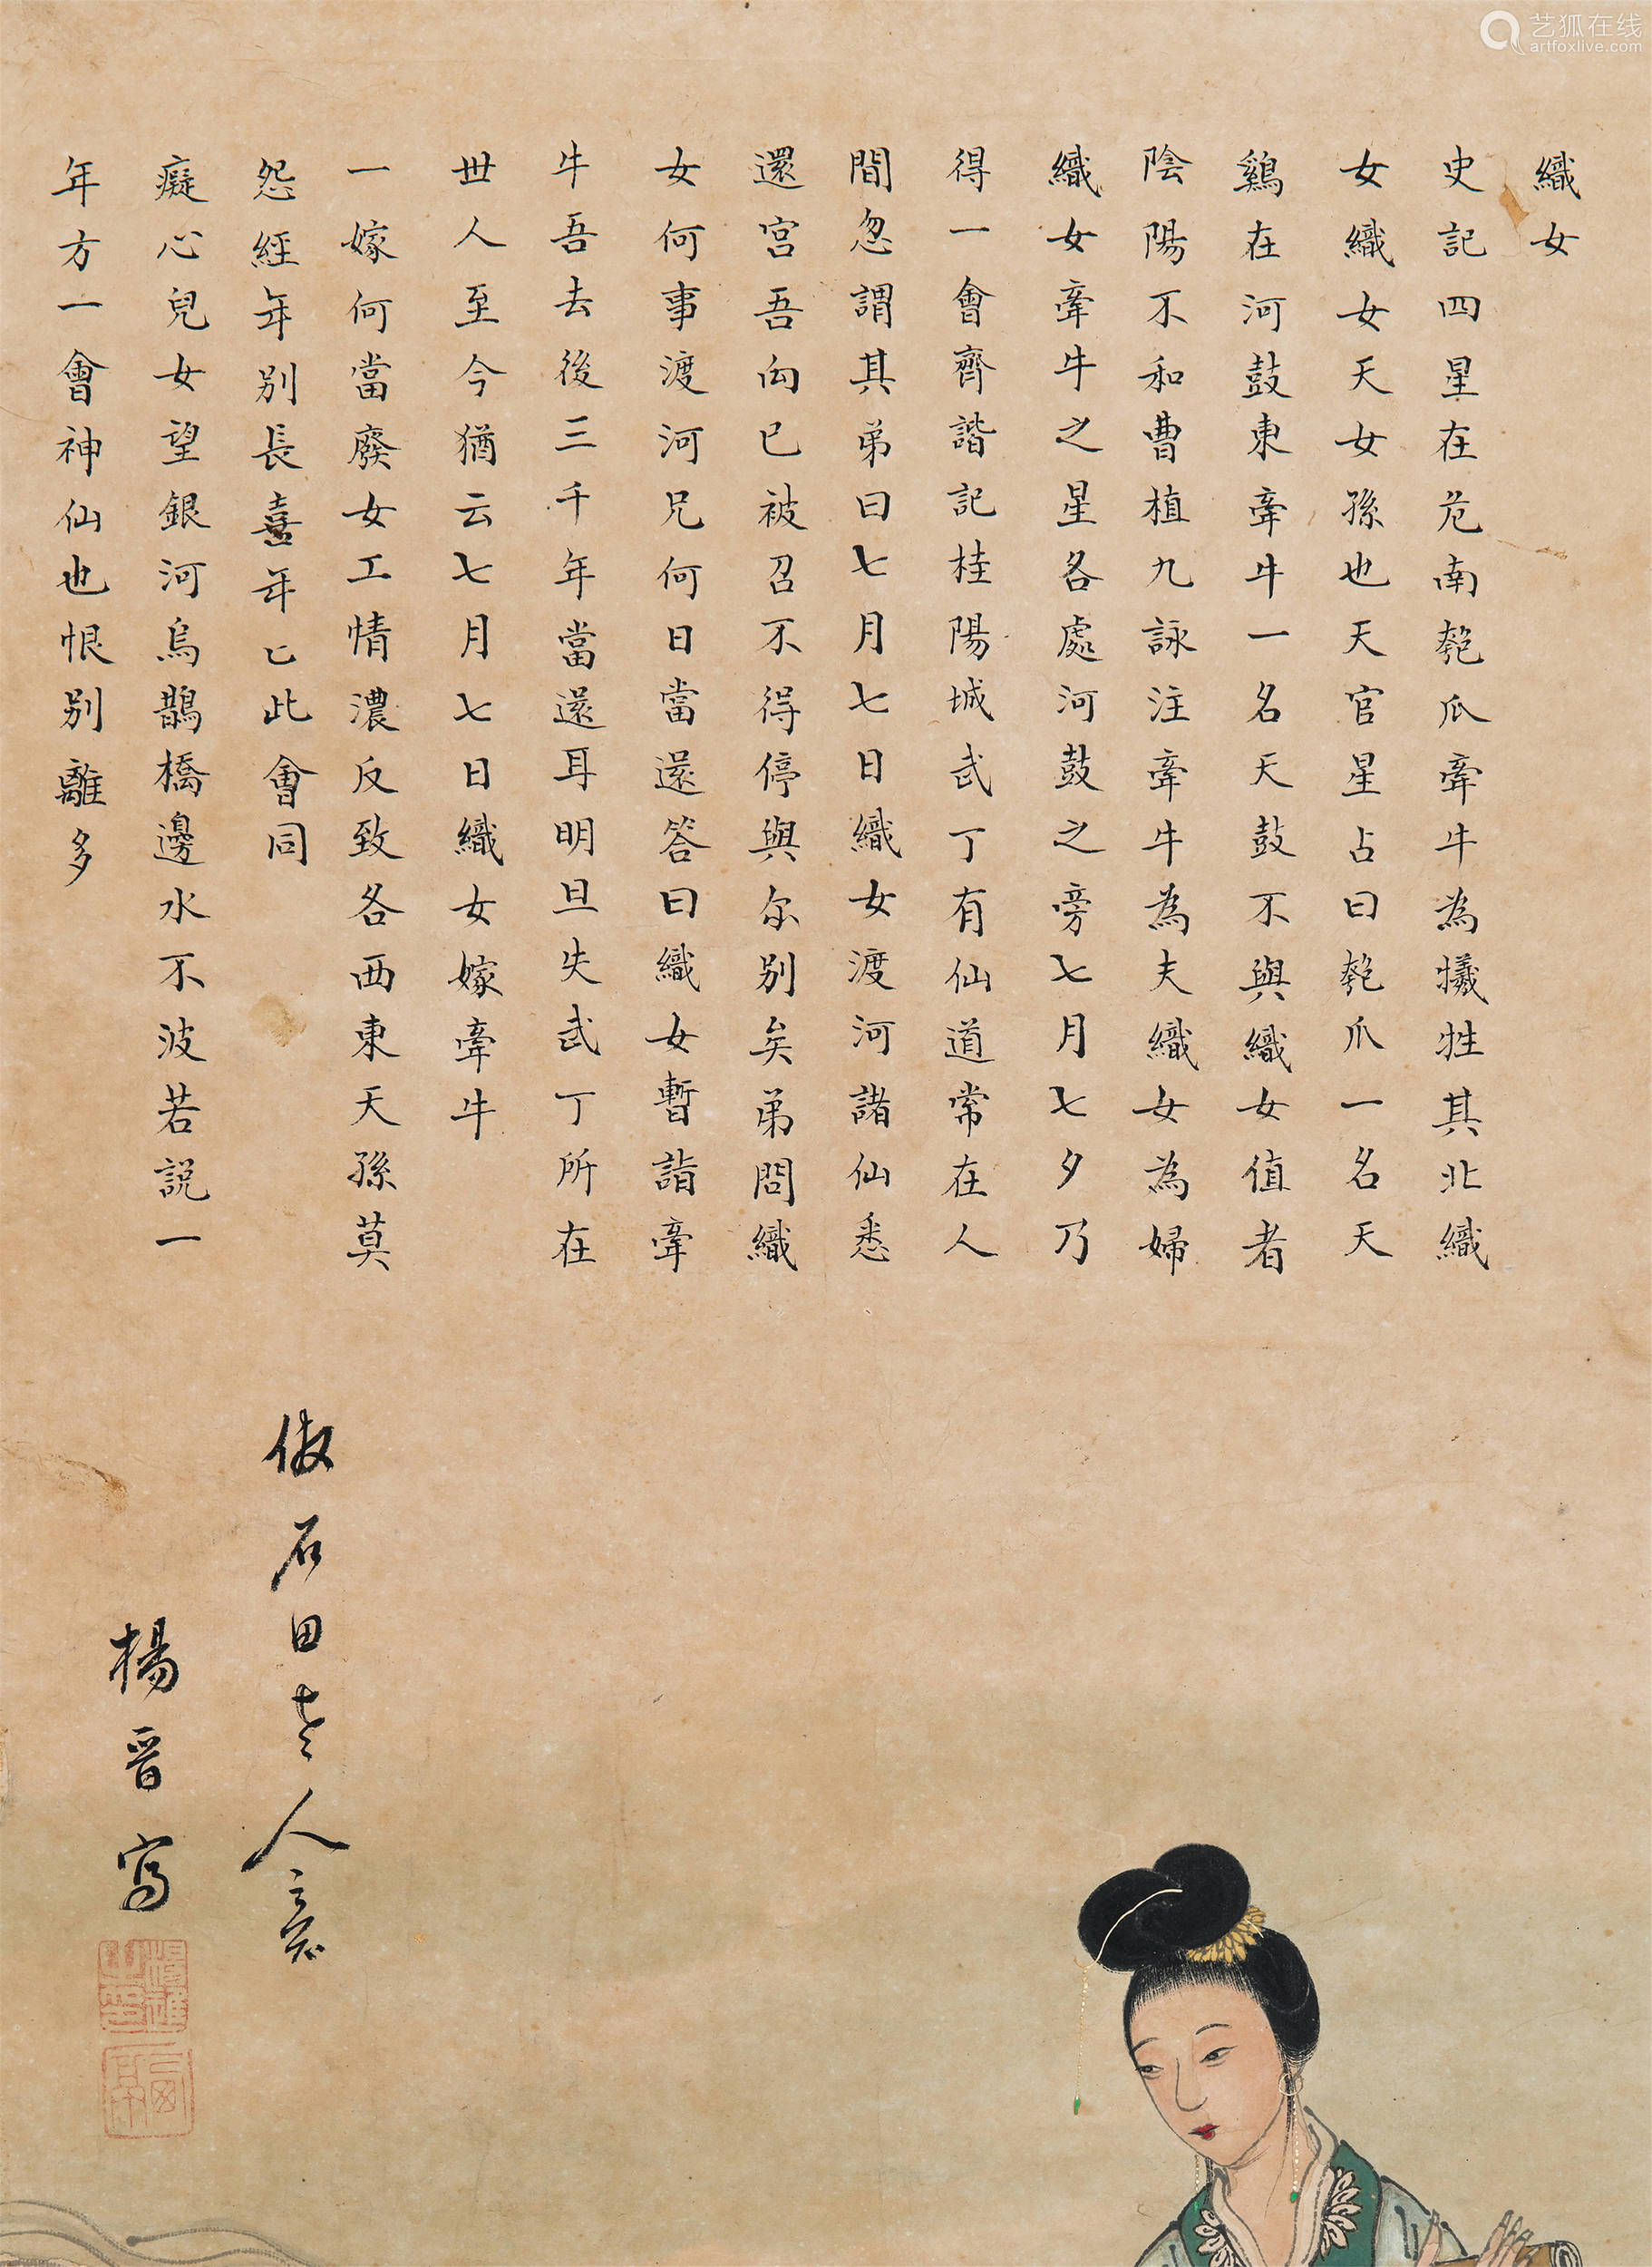 織女
史記四星在危南匏瓜牽牛為犧牲其北織
女織女天女孫也天官星占曰匏瓜一名天
鷄在河鼓東牽牛一名天鼓不與織女值者
陰陽不和曹植九詠注牽牛為夫織女為婦
織女牽牛之星各處河鼓之旁七月七夕乃
得一會齊諧記桂陽城武丁有仙道常在人
間忽謂其弟曰七月七日織女渡河諸仙悉
還宮吾向已被召不得停與尔別矣弟問織
女何事渡河兄何日當還答曰織女暫詣牽
牛吾去後三千年當還耳明旦失武丁所在
世人至今猶云七月七日織女嫁牽牛
一嫁何當廢女工情濃反致各西東天孫莫
怨經年别長喜年匕此會同
癡心兒女望銀河烏鵲橋邊水不波若説一
年方一會神仙也恨别離多
倣石田老人意
楊晋寫
艺狐在线
artfoxlive.com